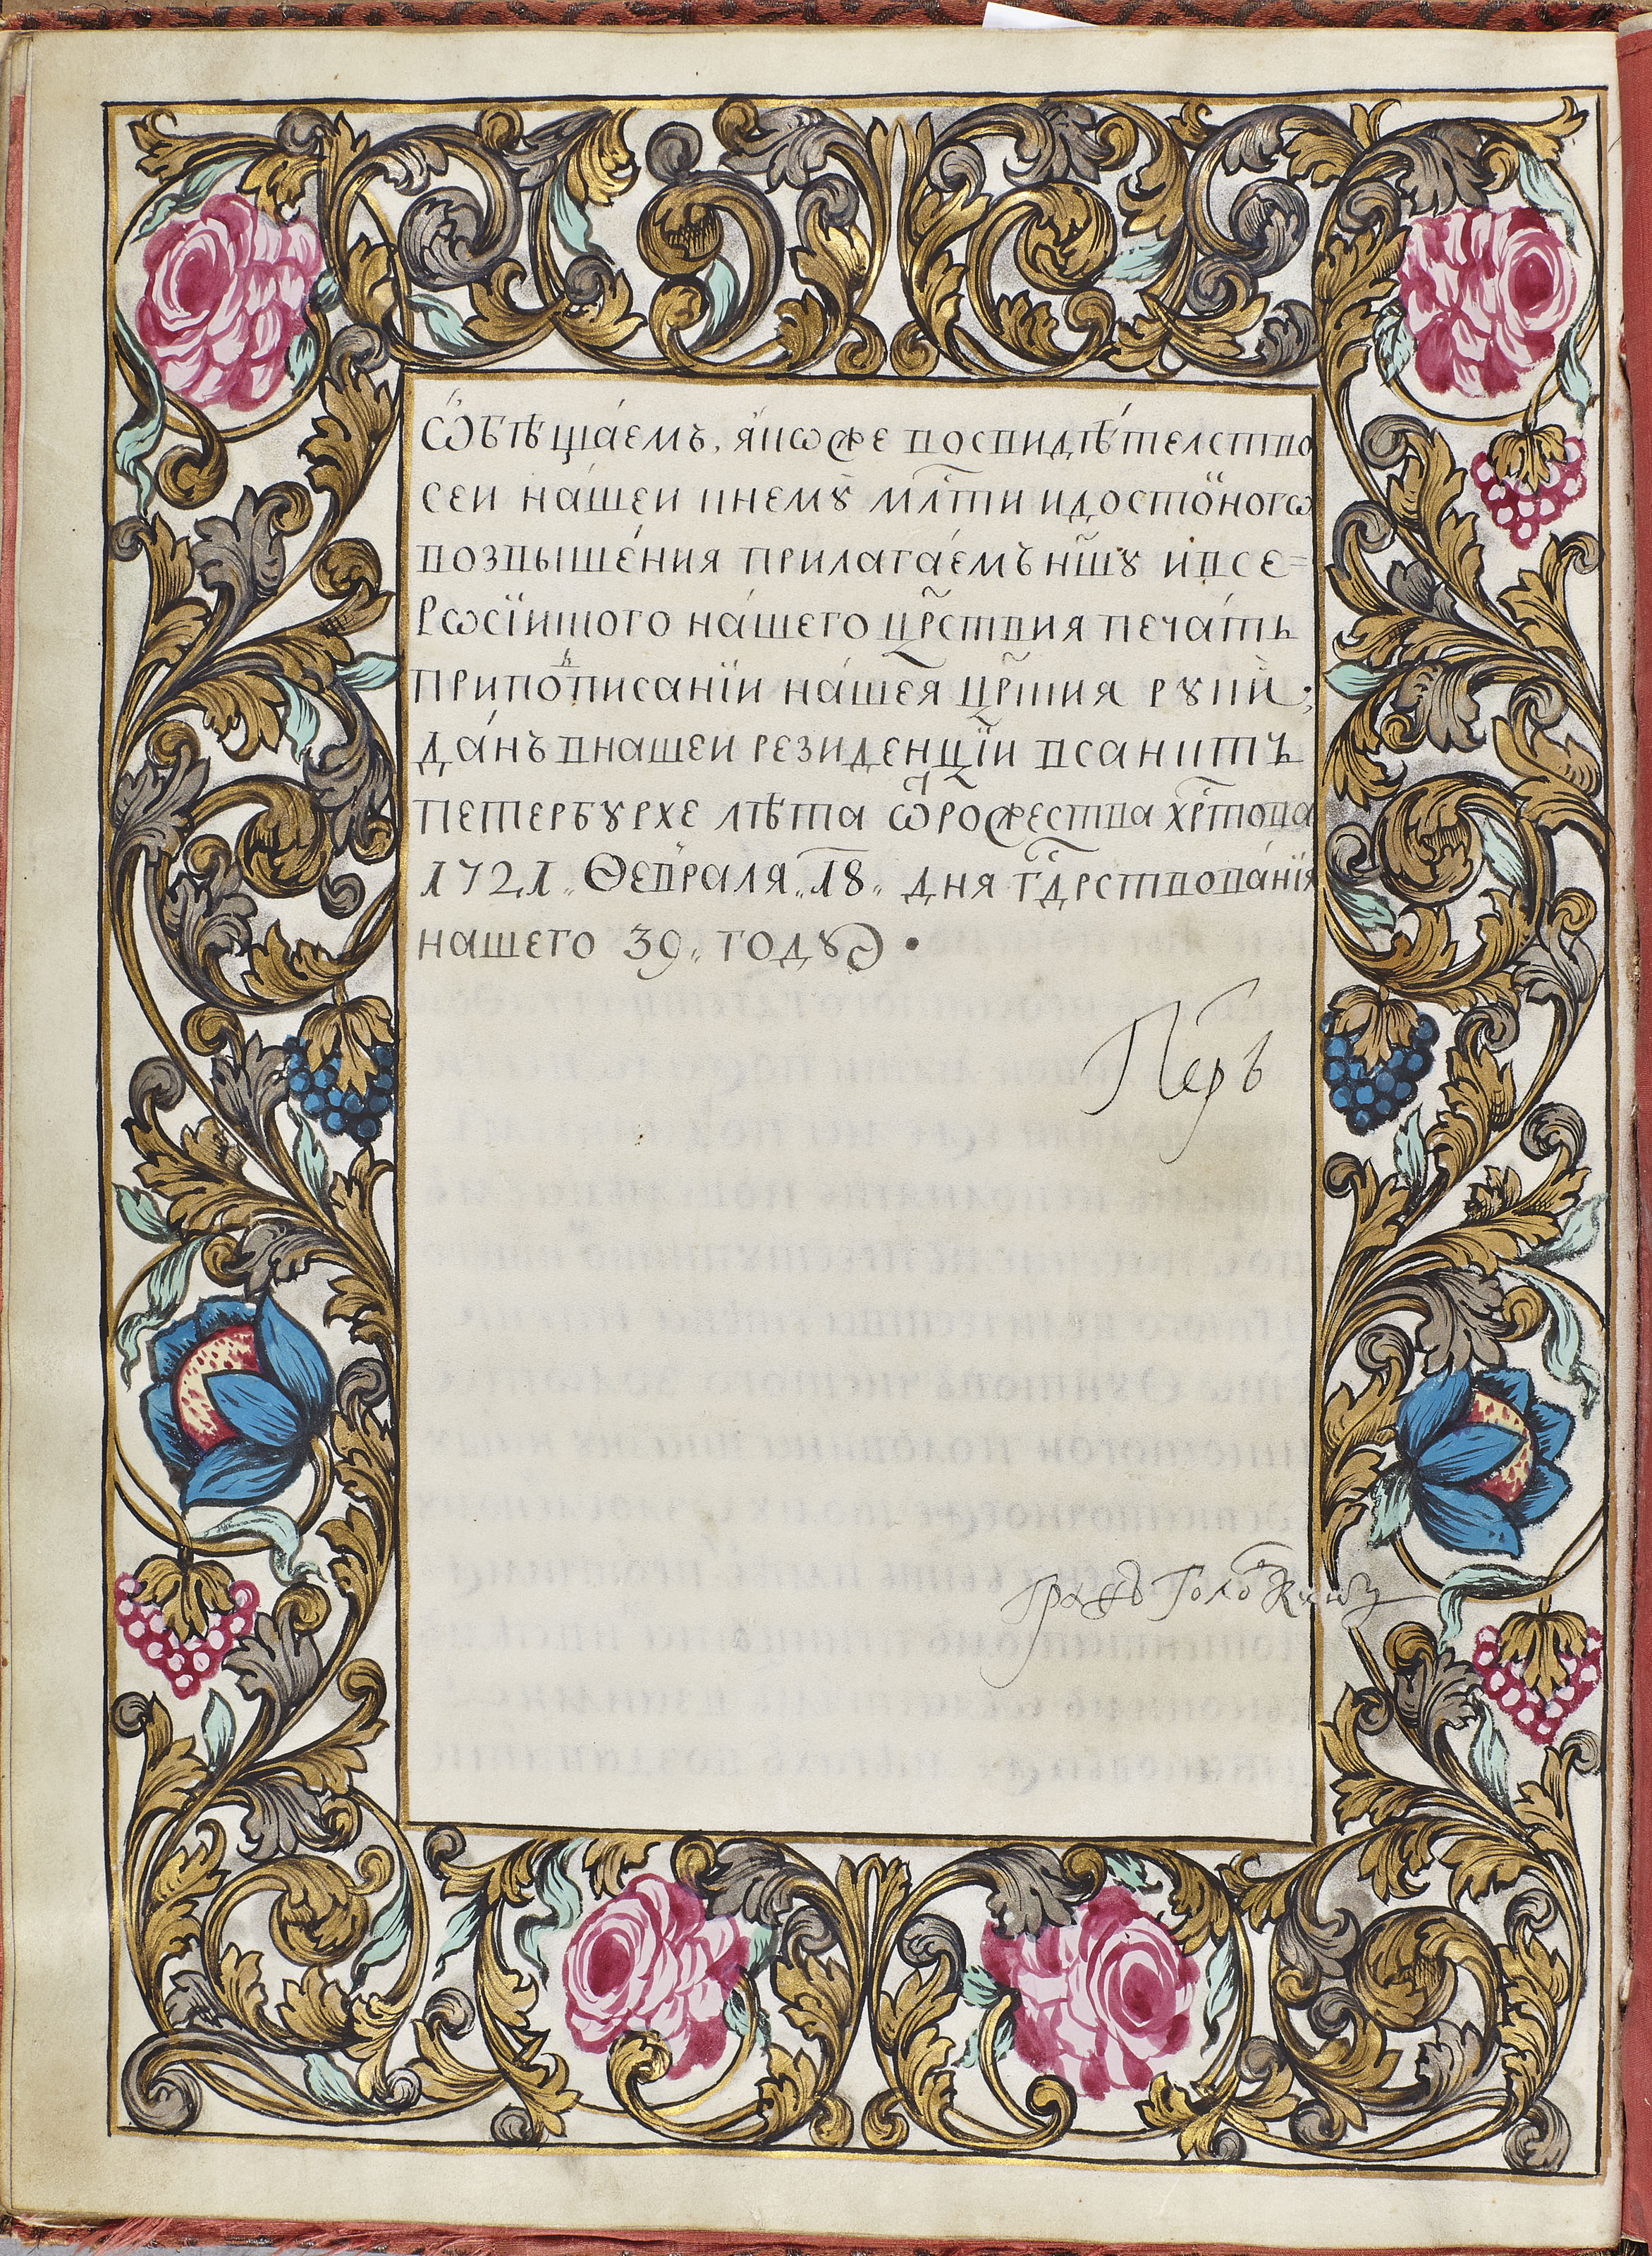 Ѡбѣщаемъ, якоже восвидѣтелство
сеи нашеи кнему млⷭ҇ти идостоиногѡ
возвышения прилагаемъ ншу ивсе=
Рѡсїиского нашего црⷭ҇твия печать
приподъписанїи нашея црⷭ҇кия руки;
данъ внашеи резиденцїи всанктъ
петербурхе лѣта ѿрожества хрⷭ҇това
1721 „ Ѳевраля „ 18 „ дня гдⷭ҇рствованїя
нашего 39 „ году •
Петръ
Графъ Головкинъ